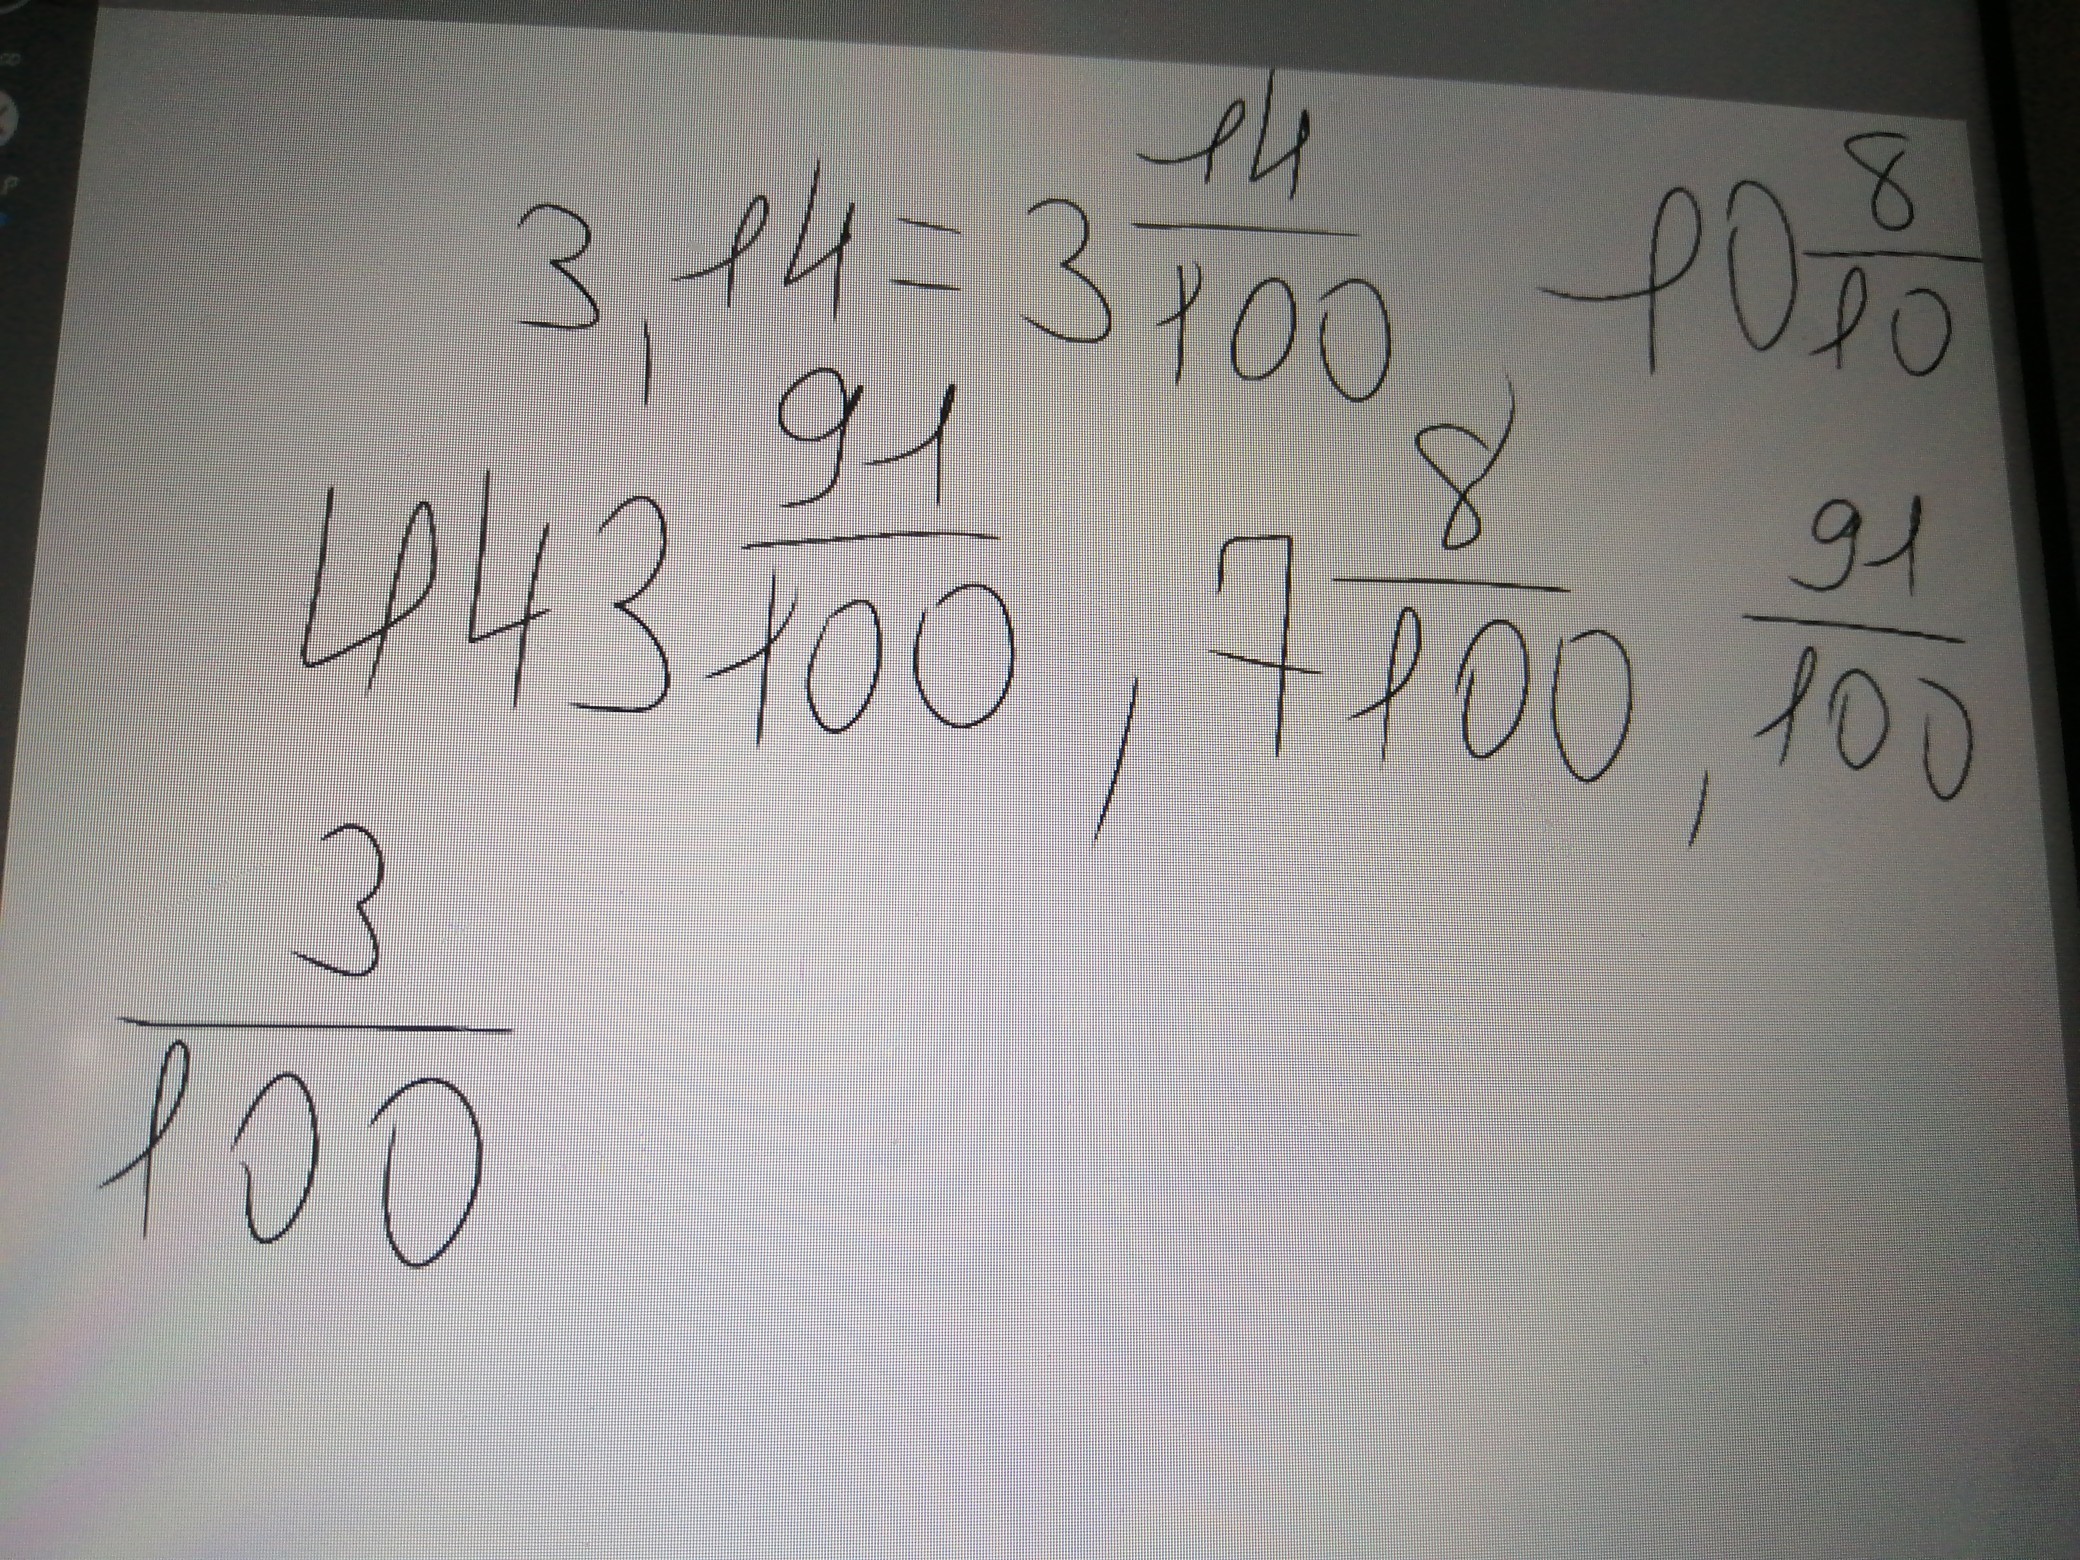 3,14 = 3 14/100, 10 8/10
4143 91/100, 7 8/100, 91/100
3/100